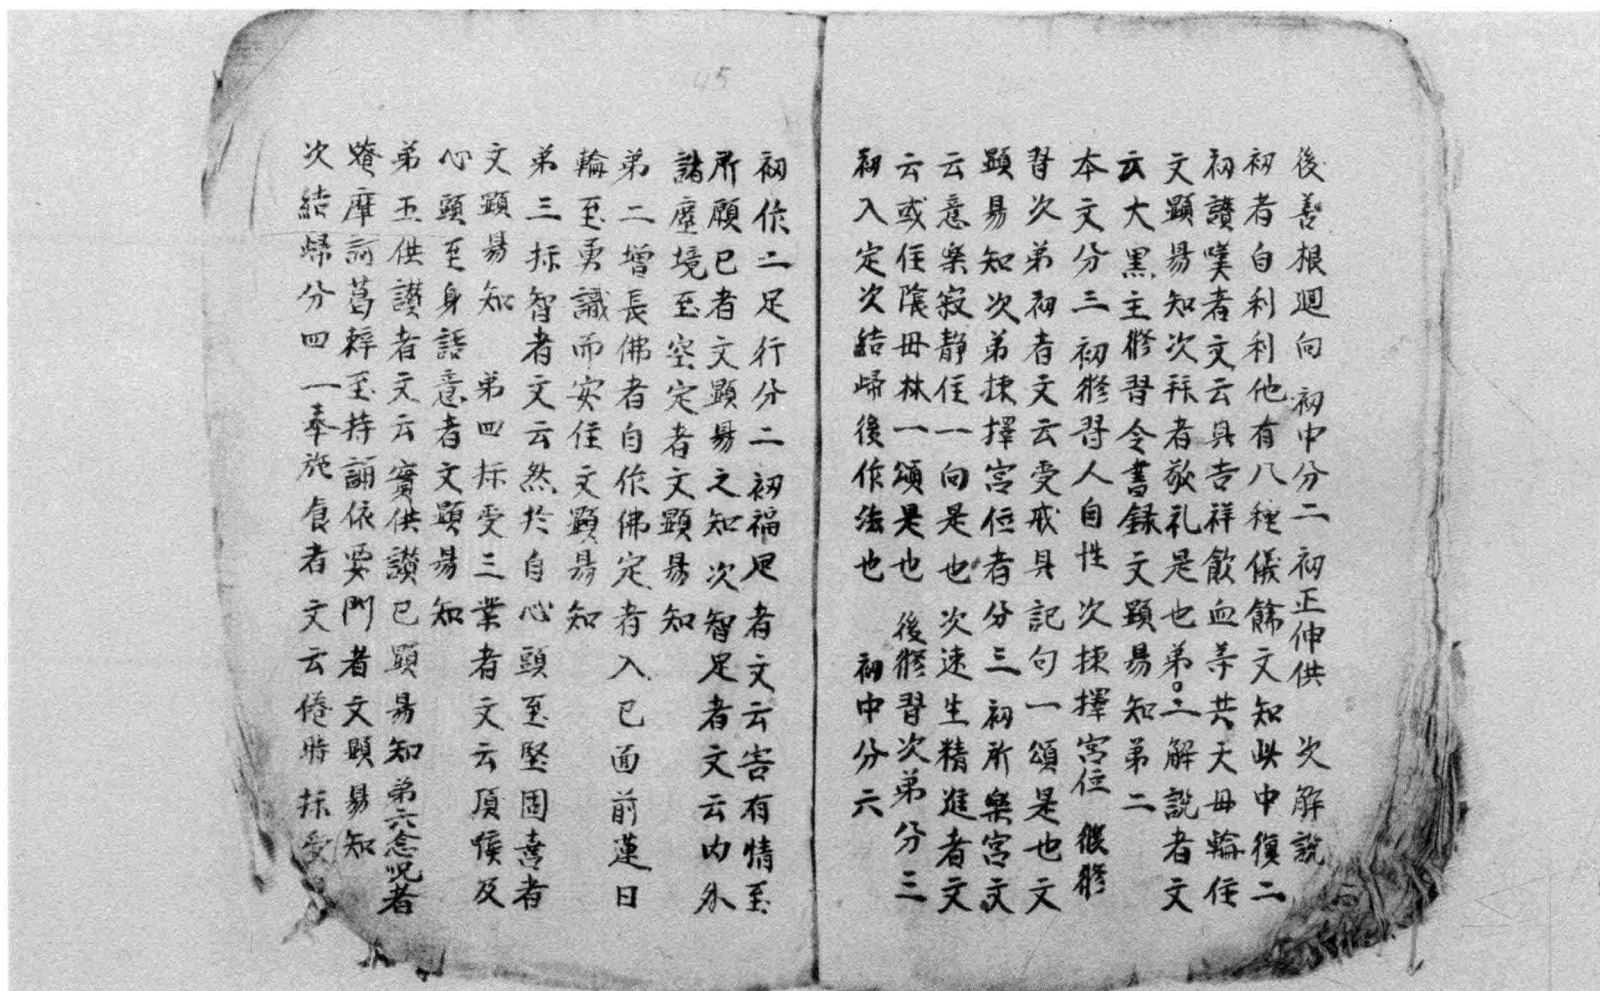 後善根廻向 初中分二 初正伸供 次解説
初者自利利他有八種儀飾文知此中復二
初讃嘆者文云具吉祥飲血等共天母輪住
文顕易知次拜者敬礼是也弟二解說者文
云大黑主修習令書録文顕易知弟二
本文分三 初修習人自性 次揀擇宮住 後修
習次弟初者文云受戒具記句一頌是也文
顕易知次弟揀擇宮住者分三初所樂宮文
云意樂寂靜住一向是也 次速生精進者文
云或住陰母林一頌是也 後修習次弟分三
初入定次結歸後作法也 初中分六
初作二足行分二初福足者文云害有情至
所願已者文顕易之知次智足者文云内外
諸塵境至空定者文顕易知
弟二增長佛者自作佛定者入已面前蓮日
輪至勇識而安住文顕易知
弟三标智者文云然於自心頭至堅固憙者
文顕易知 弟四标受三業者文云頂喉及
心頭至身語意者文顕易知
弟五供讃者文云實供讃已顕易知弟六念呪者
唵摩訶葛辢至持誦依要門者文顕易知
次結歸分四一奉施食者文云倦時标受
45